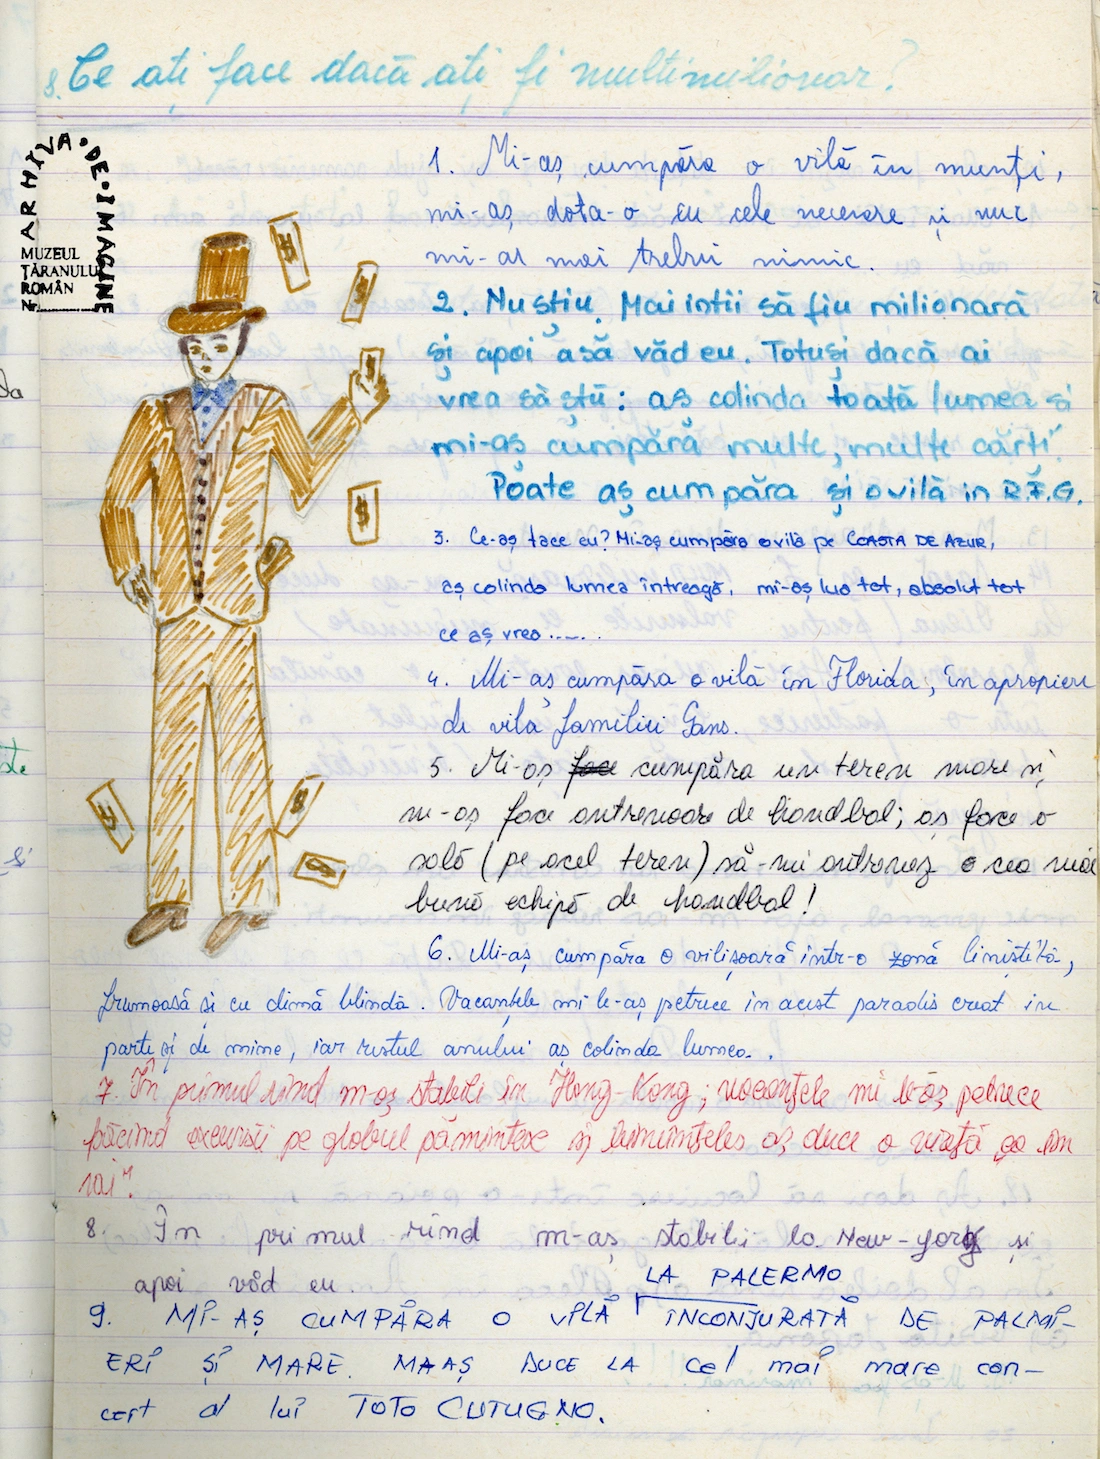 8. Ce ați face dacă ați fi multimilionar?
ARHIVA·DE·IMAGINE
MUZEUL
ȚĂRANULUI
ROMÂN
Nr.
1. Mi-aș cumpăra o vilă în munți,
mi-aș dota-o cu cele necesare și nu
mi-ar mai trebui nimic.
2. Nu știu. Mai intii să fiu milionară
și apoi asă văd eu. Totuși dacă ai
vrea să știi: aș colinda toată lumea si
mi-aș cumpără multe, multe cărți.
Poate aș cumpăra și o vilă in R.F.G.
3. Ce-aș face eu? Mi-aș cumpăra o vilă pe COASTA DE AZUR,
aș colinda lumea întreagă, mi-aș lua tot, absolut tot
ce aș vrea......
4. Mi-aș cumpăra o vilă în Florida, în apropiere
de vila familiei Gans.
5. Mi-aș face cumpăra un teren mare și
m-aș face antrenoare de handbal; aș face o
sală (pe acel teren) să-mi antrenez o cea mai
bună echipă de handbal!
6. Mi-aș cumpăra o vilișoară într-o zonă liniștită,
frumoasă și cu climă blindă. Vacanțele mi le-aș petrece in acest paradis creat in
parte și de mine, iar restul anului aș colinda lumea.
7. În primul rînd m-aș stabili în Hong-Kong; vacanțele mi le-aș petrece
făcînd excursii pe globul pămîntesc și bineînțeles aș duce o viață "ca în
rai".
8. În primul rînd m-aș stabili la New-York și
apoi văd eu.
LA PALERMO
9. MI-AȘ CUMPĂRA O VILĂ INCONJURATĂ DE PALMI-
ERI ȘI MARE. MAAȘ DUCE LA cel mai mare con-
cert al lui TOTO CUTUGNO.